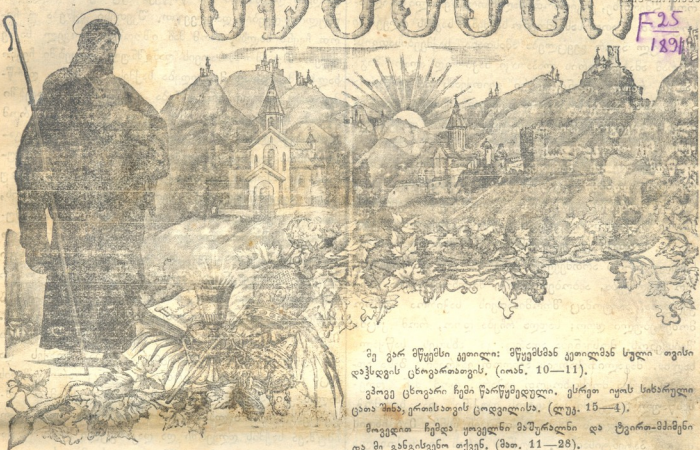 F 25
1891
მე ვარ მწყემსი კეთილი: მწყემსმან კეთილმან სული თვისი
დაჰსდვის ცხოვართათვის. (იოან. 10—11).
ვპოვე ცხოვარი ჩემი წარწყმედული. ესრეთ იყოს სიხარული
ცათა შინა, ერთისათვის ცოდვილისა. (ლუკ. 15—4).
მოვედით ჩემდა ყოველნი მაშურალნი და ტვირთ-მძიმენი
და მე განგისვენო თქვენ. (მათ. 11—28).